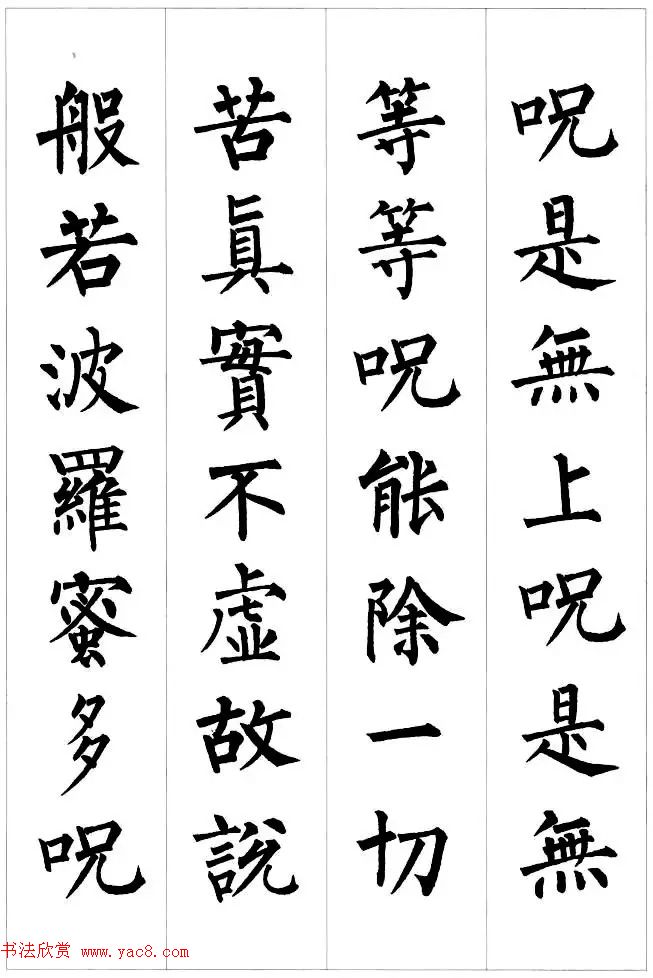 呪是無上呪是無
等等呪能除一切
苦眞實不虛故說
般若波羅蜜多呪
书法欣赏 www.yac8.com